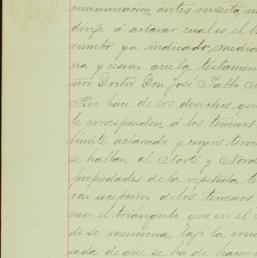 comunicacion, antes inserta
dirije á aclarar cual es el
rumbo ya indicado, media
na y cesion que la testament
ñor Doctor Don José Pablo
Rio hace de los derechos, que
le corresponden á los terrenos
límite aclarado y cuyos terre
se hallan al Norte y Nord
propiedades de la repetida te
con escepcion de los terrenos
nen el triángulo que en el
do se menciona, bajo la con
sada de que se ha de hacer